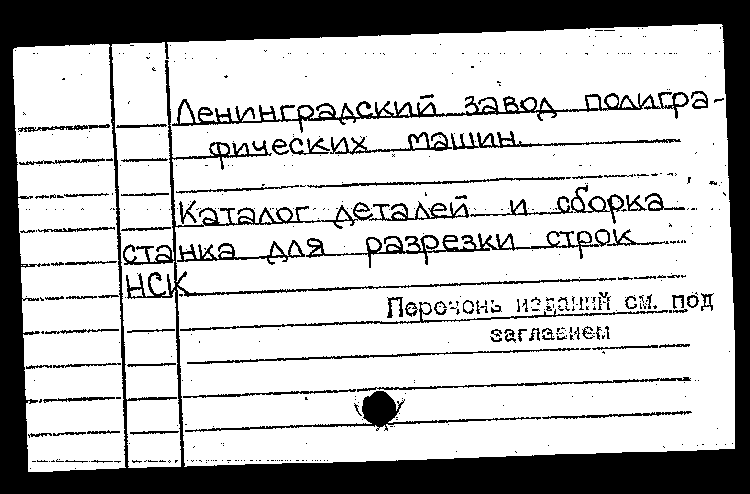 Ленинградский завод полигра-
фических машин.
Каталог деталей и сборка
станка для разрезки строк
НСК
Перечень изданий см. под
заглавием